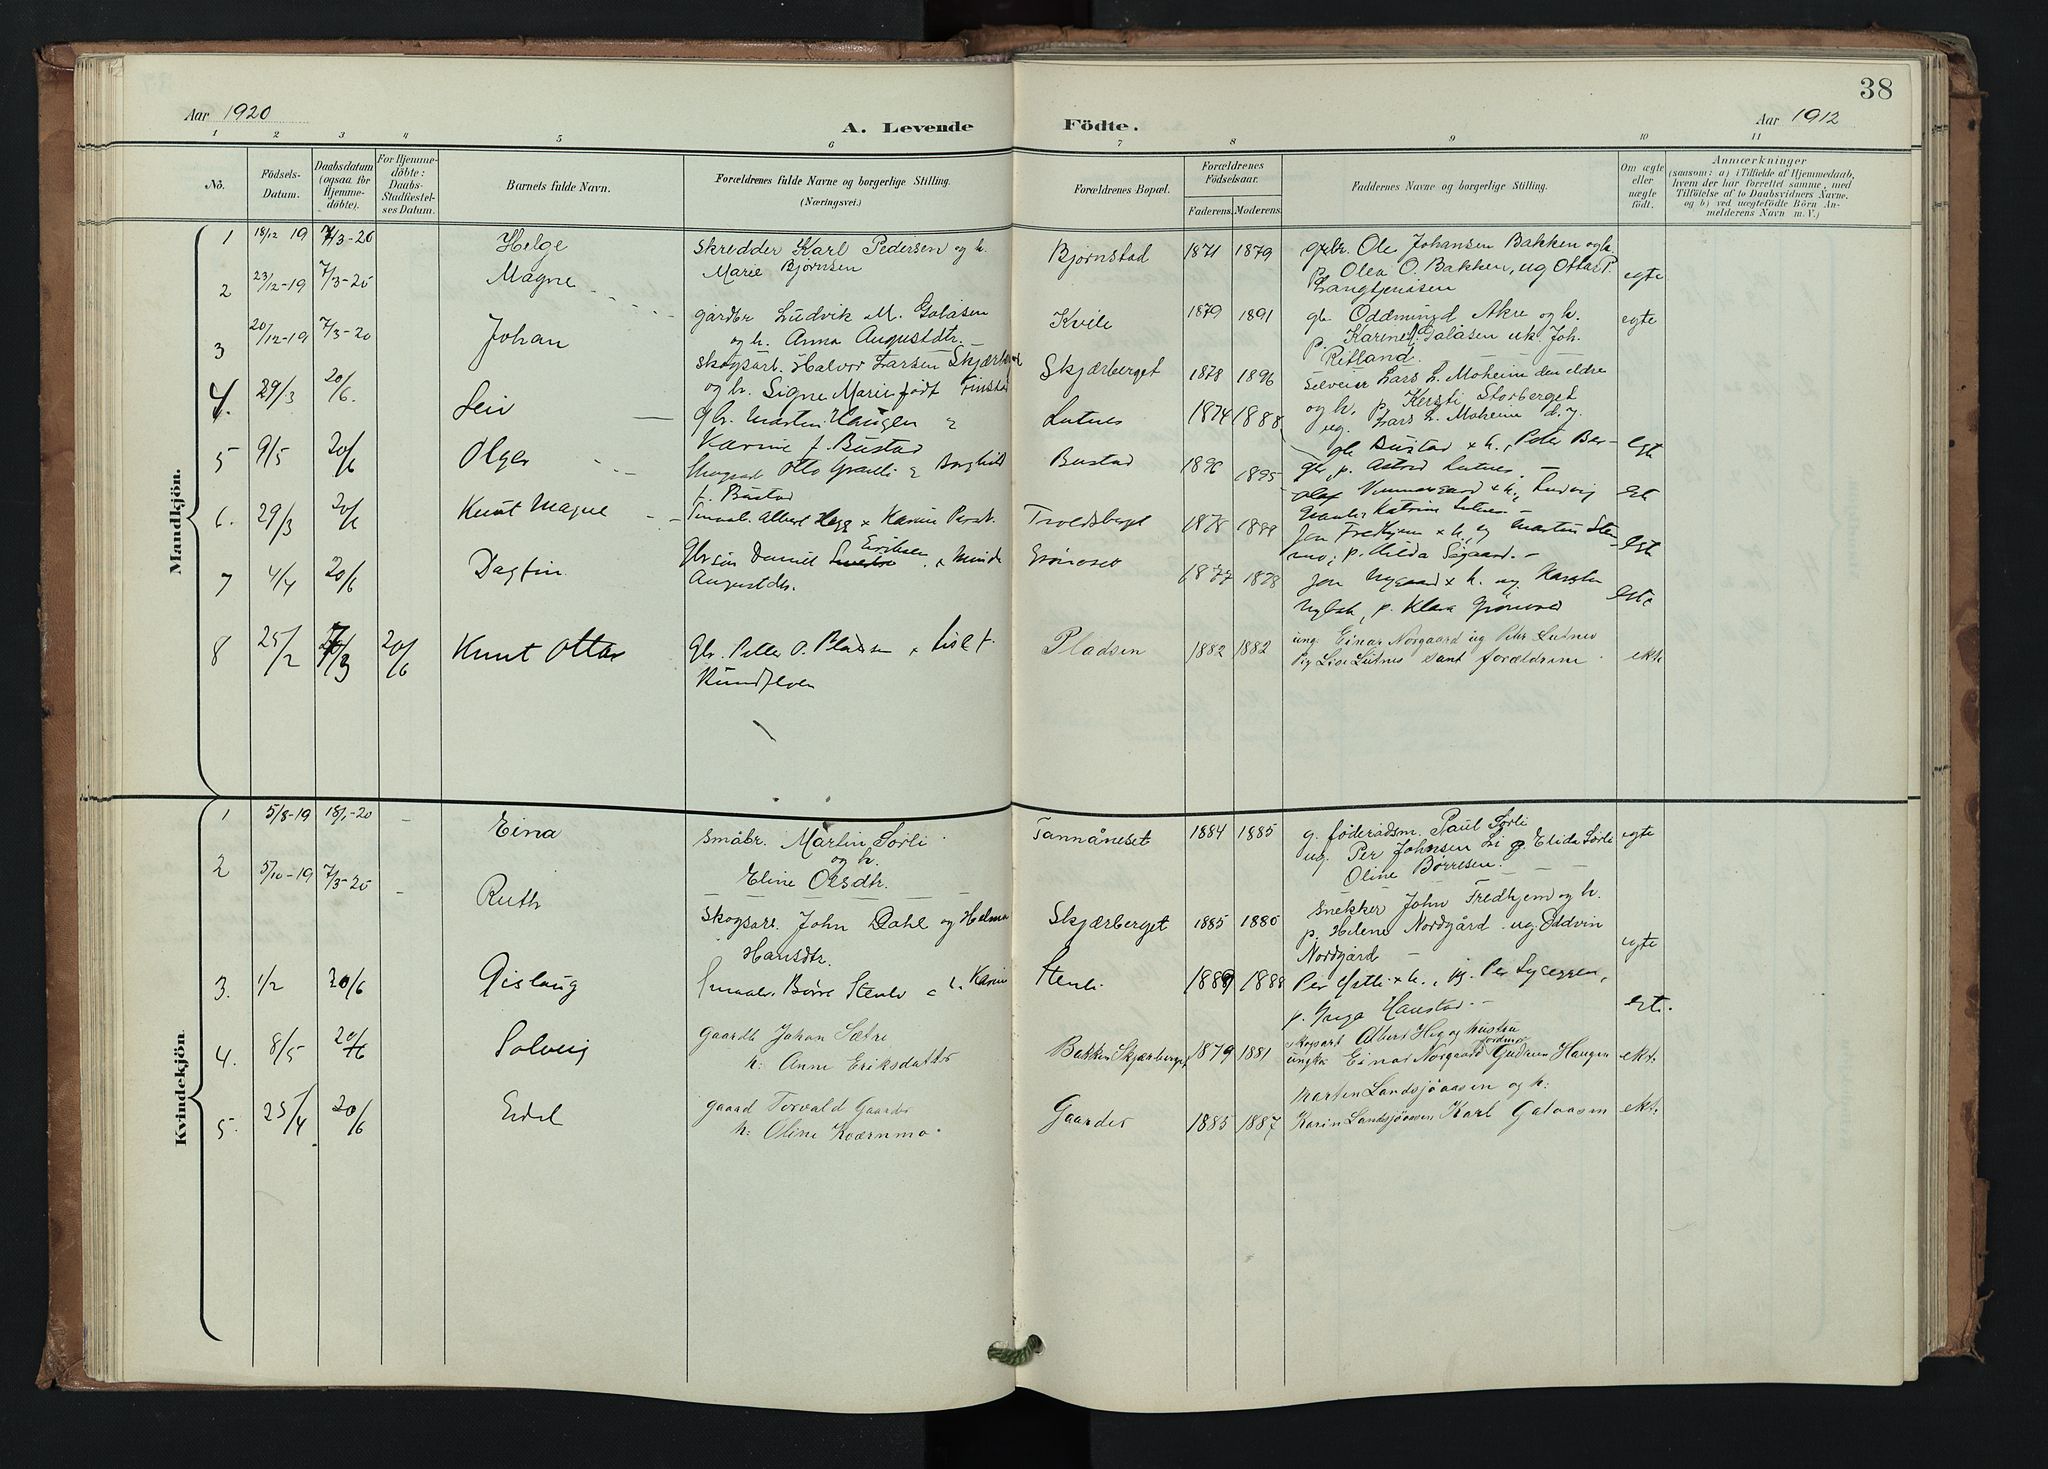 38
Aar 1920
A. Levende Födte.
Aar 1912
1 2 3 4 5 6 7 8 9 10 11
No.
Födsels-
Datum.
Daabsdatum
(ogsaa for
Hjemme-
döbte).
For Hjemme-
döbte:
Daabs-
Stadfæstel-
ses Datum.
Barnets fulde Navn.
Forældrenes fulde Navne og borgerlige Stilling.
(Næringsvei.)
Forældrenes Bopæl.
Forældrenes
Födselsaar.
Faderens. Moderens.
Faddernes Navne og borgerlige Stilling.
Om ægte
eller
uægte
födt.
Anmærkninger
(saasom: a) i Tilfælde af Hjemmedaab,
hvem der har forrettet samme, med
Tilföielse af to Daabsvidners Navne,
og b) ved uægtefödte Börn An-
melderens Navn m. V.)
Mandkjön.
1 18/12 19 7/3-20 Helge
skredder Karl Pedersen og h.
Marie Bjørnsen
Bjørnstad 1871 1879
gbr. Ole Johansen Bakken og h.
p. Olea O. Bakken, ug Ottar P.
Langtjenåsen
egte
2 23/12-19 7/3-20 Magne
gårdbr Ludvik M. Galåsen
og h. Anna Augustdtr.
Kvile 1879 1891
gb. Oddmund Akre og h.
p. Karine Galåsen uk. Joh.
Rifland.
egte
3 20/12-19 7/3-20 Johan
skogsarb. Halvor Larsen Skjærberget
og h. Signe Marie født Finstad
Skjærberget 1878 1896
selveier Lars L. Moheim den eldre
og h. p. Kersti Storberget
ug. Lars L. Moheim d. y.
4. 29/3 20/6. Leiv
Gbr. Martin Haugen
Karine f. Bustad
Lutnes 1874 1888
Bustad + h., Peter Ber-
p. Astrid Lutnes
egt
5 9/5 20/6 Olger
Otto Graneli Borghild
f. Bustad
Bustad 1896 1895
Olaf + h., Ludvig
Katrine Lutnes
egt.
6. 29/3 20/6 Knut Magne
Smaabr. Albert Hegg + Karin Persdt.
Troldsberget 1878 1888
Jon Fredhjem + h., ug Martin Sten-
mo, p. Hilda Søgaard.
egt
7 4/4 20/6 Dagfin
Gbrsøn Daniel Eriksen + Minda
Augustdtr.
Grønoset 1877 1878
Jon Nygaard + h. ug. Karsten
p. Klara Grønoset
egte
8 25/2 7/3 20/6 Knut Ottar
Gbr. Peder O. Pladsen + Lise f.
Rundfloen
Pladsen 1882 1882
ung. Einar Norgaard ug Petr Lutnes
Pig Lise Lutnes samt forældrene.
ekte
Kvindekjön
1 5/8-19 18/1-20 Eina
småbr. Martin Sørli
og h.
Eline Olsdtr.
Tannåneset 1884 1885
g. føderådsm. Paul Sørli
ug. Per Johnsen Li p. Elida Sørli
Oline Børresen.
egte
2 5/10-19 7/3-20 Ruth
skogsarb. John Dahl og Helma
Hansdtr.
Skjærberget 1885 1880
snekker John Fredhjem og h.
p. Helene Nordgård ug. Oddvin
Nordgård
egte
3. 1/2 20/6 Gislaug
Smaabr. Børre Stenli h. Karin
Stenli 1889 1888
Per + h., ug. Per Lyseggen,
p. Inga Haustad.
egt.
4. 8/5 20/6 Solveig
Gaardb Johan Sætre
h: Anne Eriksdatter
Bakken Skjærberget 1879 1881
skogsarb Albert Heg og hustru
ungka Einar Norgaard Gudrun Haugen
ekte
5. 25/4 20/6 Edel
gaard Torvald Gaarder
h: Oline Kværnmo.
Gaarder 1885 1887
Marten Landsjøaasen og h:
Karin Landsjøaasen Karl Galaasen
ekte